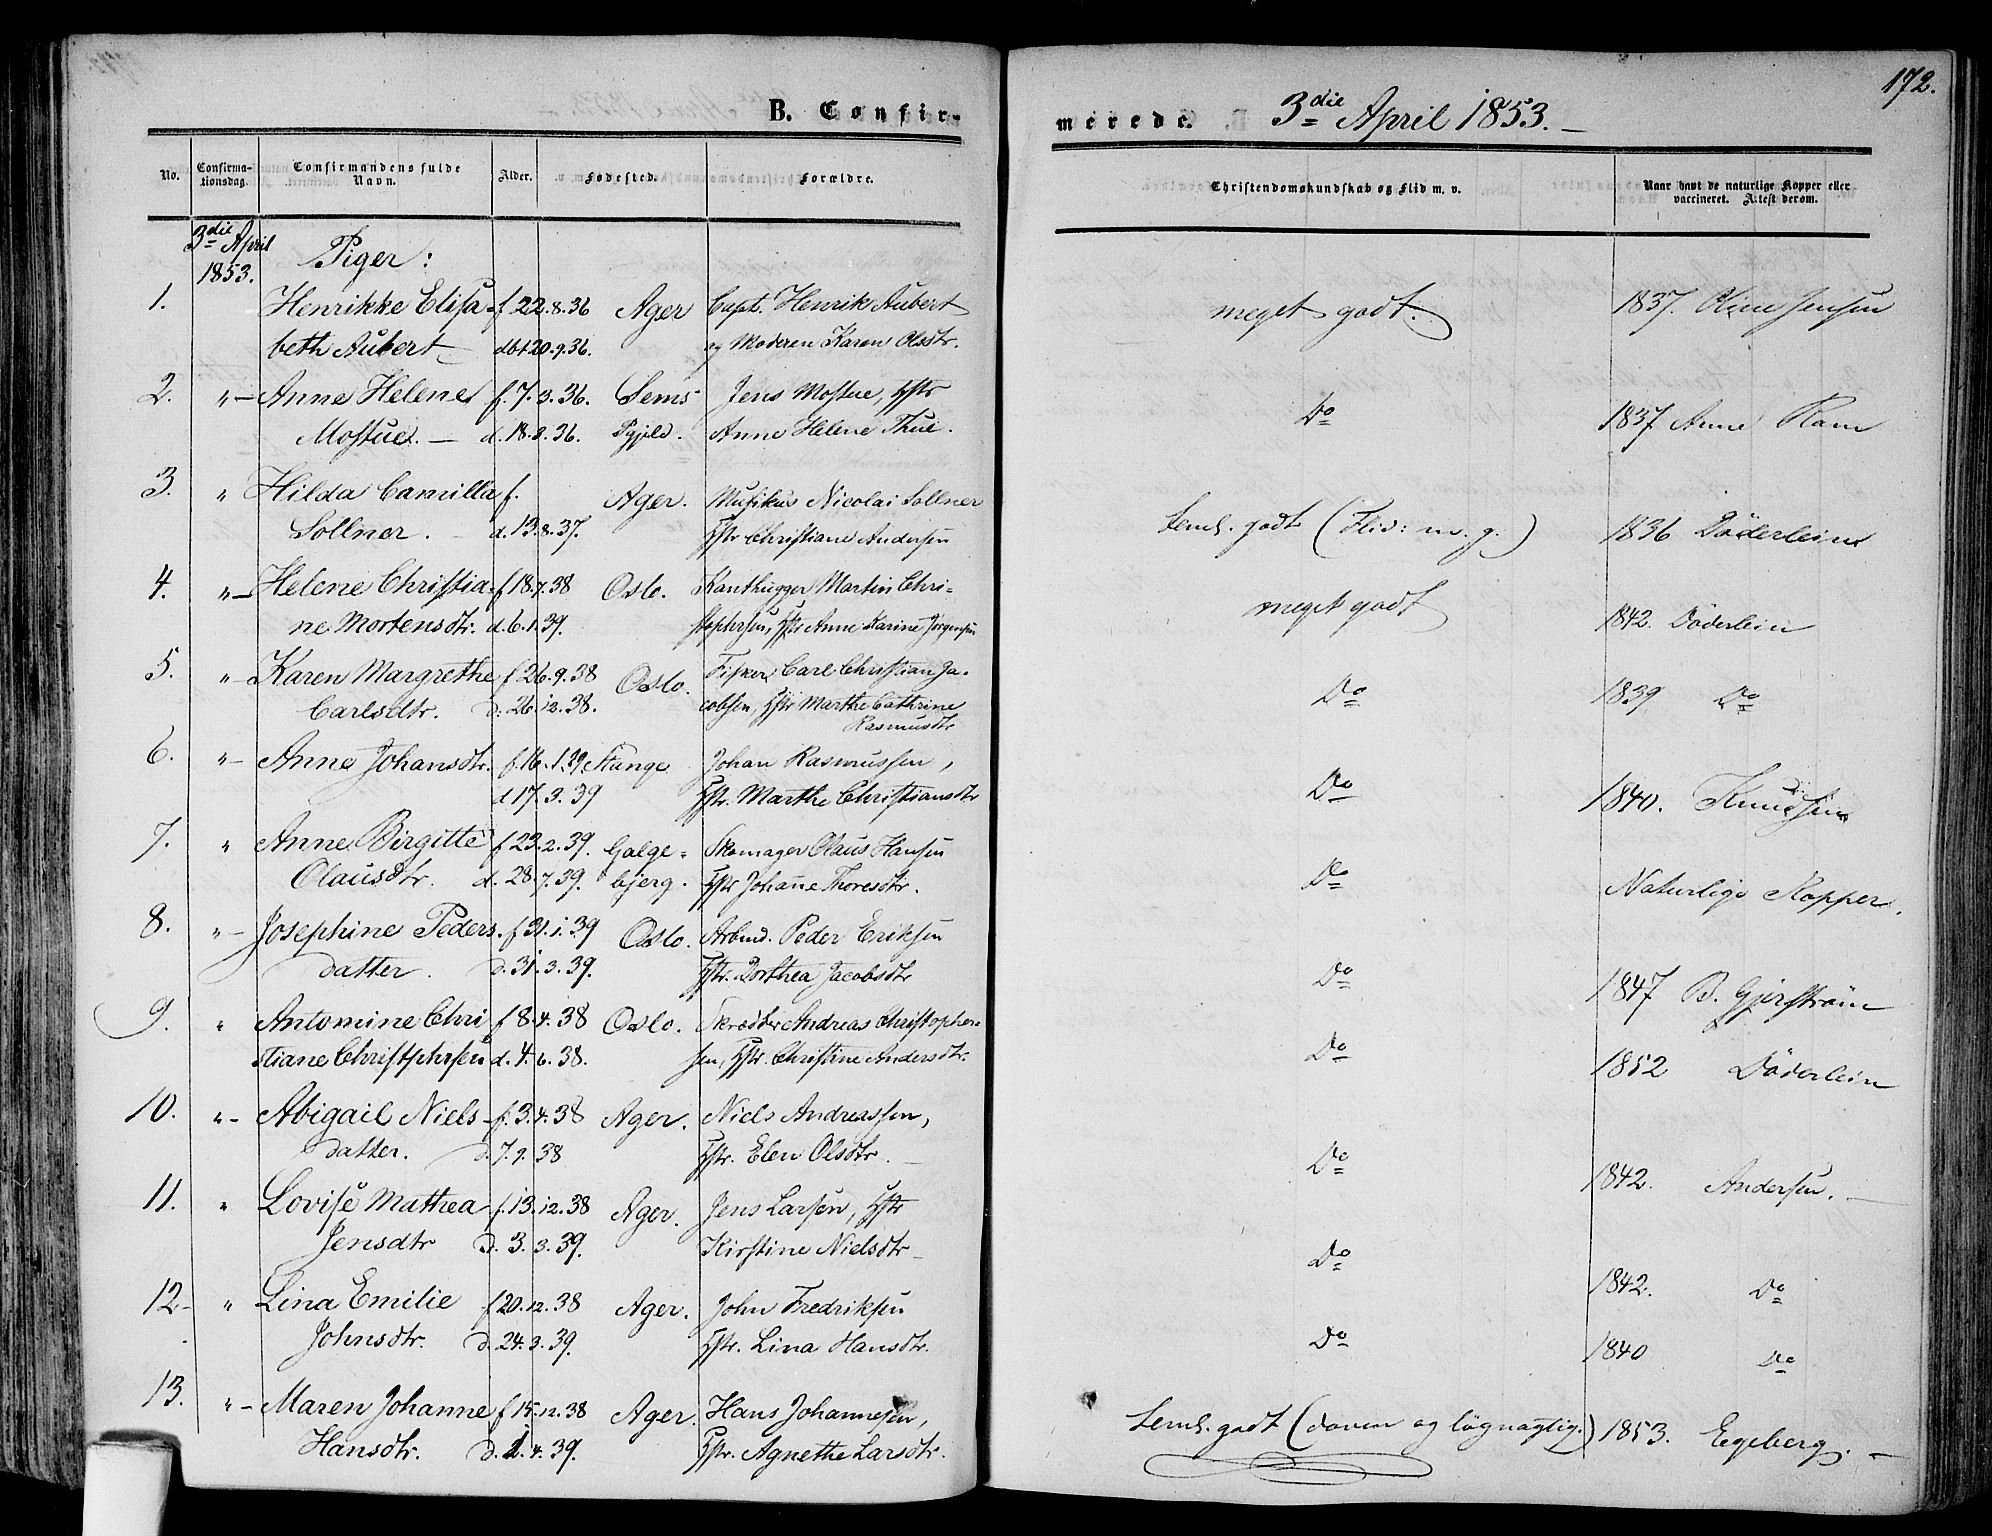 B. Confir-
merede.
3die April 1853.
172.
No.
Confirma-
tionsdag.
Confirmandens fulde
Navn.
Alder.
Fødested.
Forældre.
Christendomskundskab og Flid m. v.
Naar havt de naturlige Kopper eller
vaccineret. Attest derom.
3die April
1853.
Piger:
1. Henrikke Elisa- f 22.8.36 Ager Capt. Henrik Aubert meget godt. 1837. Oline Jensen
beth Aubert dbt 20.9.36. og Moderen Karen Olsdtr.
2. "- Anne Helene f. 7.3.36. Sems Jens Mostue, Hstr Do 1837 Anne Ram
Mostue. - d. 18.3.36. Pgjeld. Anne Helene Thue.
3. " Hilda Camilla f. Ager. Musikus Nicolai Sollner Temd. godt (Flid: m. g.) 1836 Döderlein
Sollner. - d. 13.8.37. Hstr Christiane Andersen
4. "- Helene Christia- f 18.7.38 Oslo. Kanthugger Martin Chri- meget godt 1842. Döderlein
ne Mortensdtr. d. 6.1.39. stophersen, Hstr Anne Karine Jørgensen
5. "- Karen Margrethe f 26.9.38 Oslo. Fisker Carl Christian Ja- Do 1839 Do
Carlsdtr. d: 26.12.38. cobsen, Hstr Marthe Cathrine
Rasmusdtr
6. "- Anne Johansdtr. f. 16.1.39. Stange Johan Rasmussen, Do 1840. Knudsen
d 17.3.39 Hstr. Marthe Christiansdtr
7. " Anne Birgitte f 23.2.39. Galge- Skomager Olaus Hansen Do Naturlige Kopper.
Olausdtr. d. 28.7.39. bjerg. Hstr Johanne Thoresdtr.
8. "- Josephine Peders- f 31.1.39 Oslo. Arbmd. Peder Eriksen Do 1847 B. Gjerström
datter. d. 31.3.39. Hstr. Dorthea Jacobsdtr
9. " Antomine Chri f 8.4.38 Oslo. Skrædder Andreas Christopher- Do 1852 Döderlein
stiane Christphrsen d. 4.6.38. sen, Hstr. Christine Andersdtr.
10. "- Abigail Niels- f. 3.4.38 Ager. Niels Andreassen, Do 1842. Andersen.
datter. d. 7.9.38 Hstr. Elen Olsdtr. -
11. " Lovise Mathea f. 13.12.38 Ager. Jens Larsen, Hstr Do 1842. Do
Jensdtr d. 3.3.39. Kirstine Nielsdtr
12- " Lina Emilie f 20.12.38 Ager. John Fredriksen Do 1840 Do
Johnsdtr. d. 24.3.39. Hstr. Lina Hansdtr.
13. "- Maren Johanne f 15.12.38 Ager. Hans Johannesen, Temd. godt (doven og løgnagtig.) 1853. Egeberg. -
Hansdtr. d. 1.4.39. Hstr. Agnethe Larsdtr.